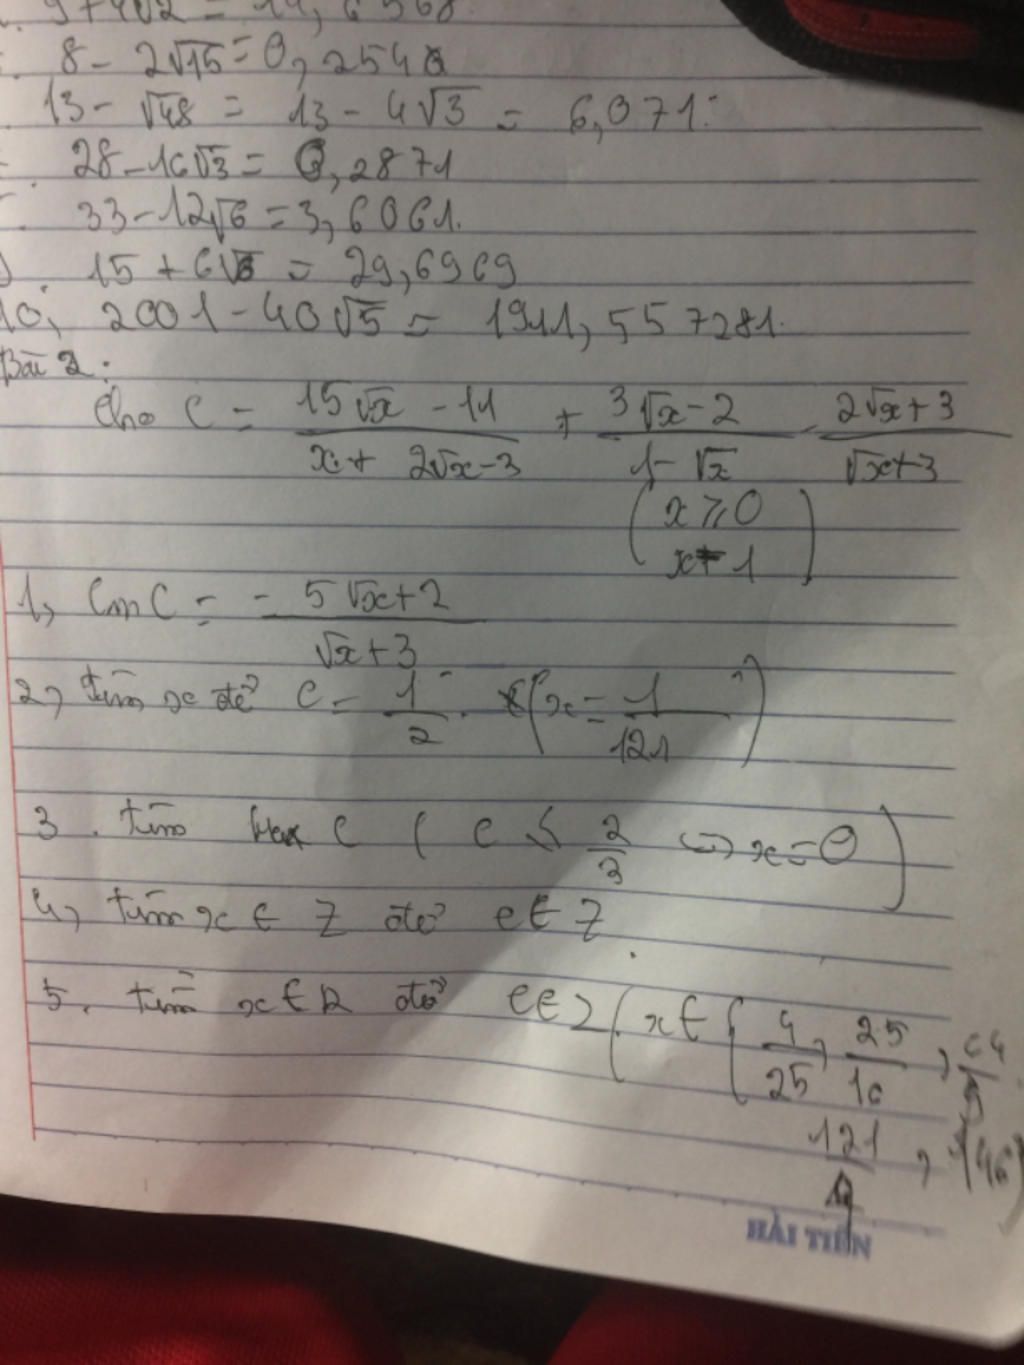 9+4√2 = 14,6568
8 - 2√15 = 0,2540
13 - √48 = 13 - 4√3 = 6,071
28 - 16√3 = 0,2871
33 - 12√6 = 3,6061.
15 + 6√6 = 29,6969
10, 2001 - 40√5 = 1911,557281.
Bài 2:
Cho C = (15√x - 11)/(x + 2√x - 3) + (3√x - 2)/(1 - √x) - (2√x + 3)/(√x + 3)
(x ≥ 0
x ≠ 1)
1, CM C = - (5√x + 2)/(√x + 3)
2, tìm x để C = 1/2. (x = 1/121)
3. tìm Max C ( C ≤ 2/3 ⇔ x = 0 )
4, tìm x ∈ Z để C ∈ Z
5. tìm x ∈ R để C ∈ Z ( x ∈ { 4/25, 25/16, 64/9
121/4, 146 )
HẢI TIẾN